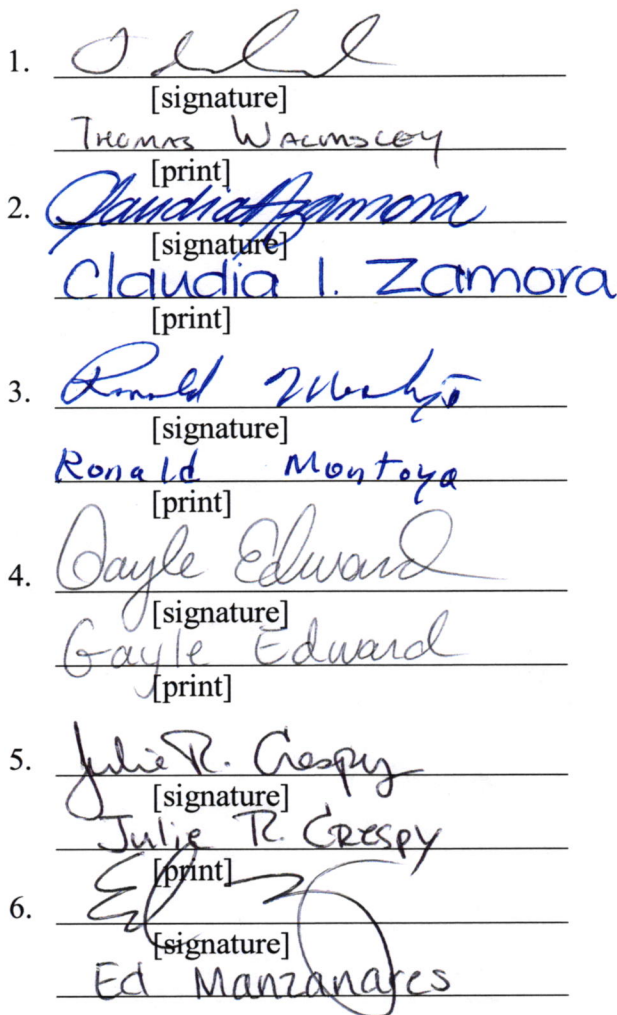 1.
[signature]
Thomas Walmsley
[print]
2. Claudia I Zamora
[signature]
Claudia I. Zamora
[print]
3. Ronald Montoya
[signature]
Ronald Montoya
[print]
4. Gayle Edward
[signature]
Gayle Edward
[print]
5. Julie R. Crespy
[signature]
Julie R. Crespy
[print]
6.
[signature]
Ed Manzanares